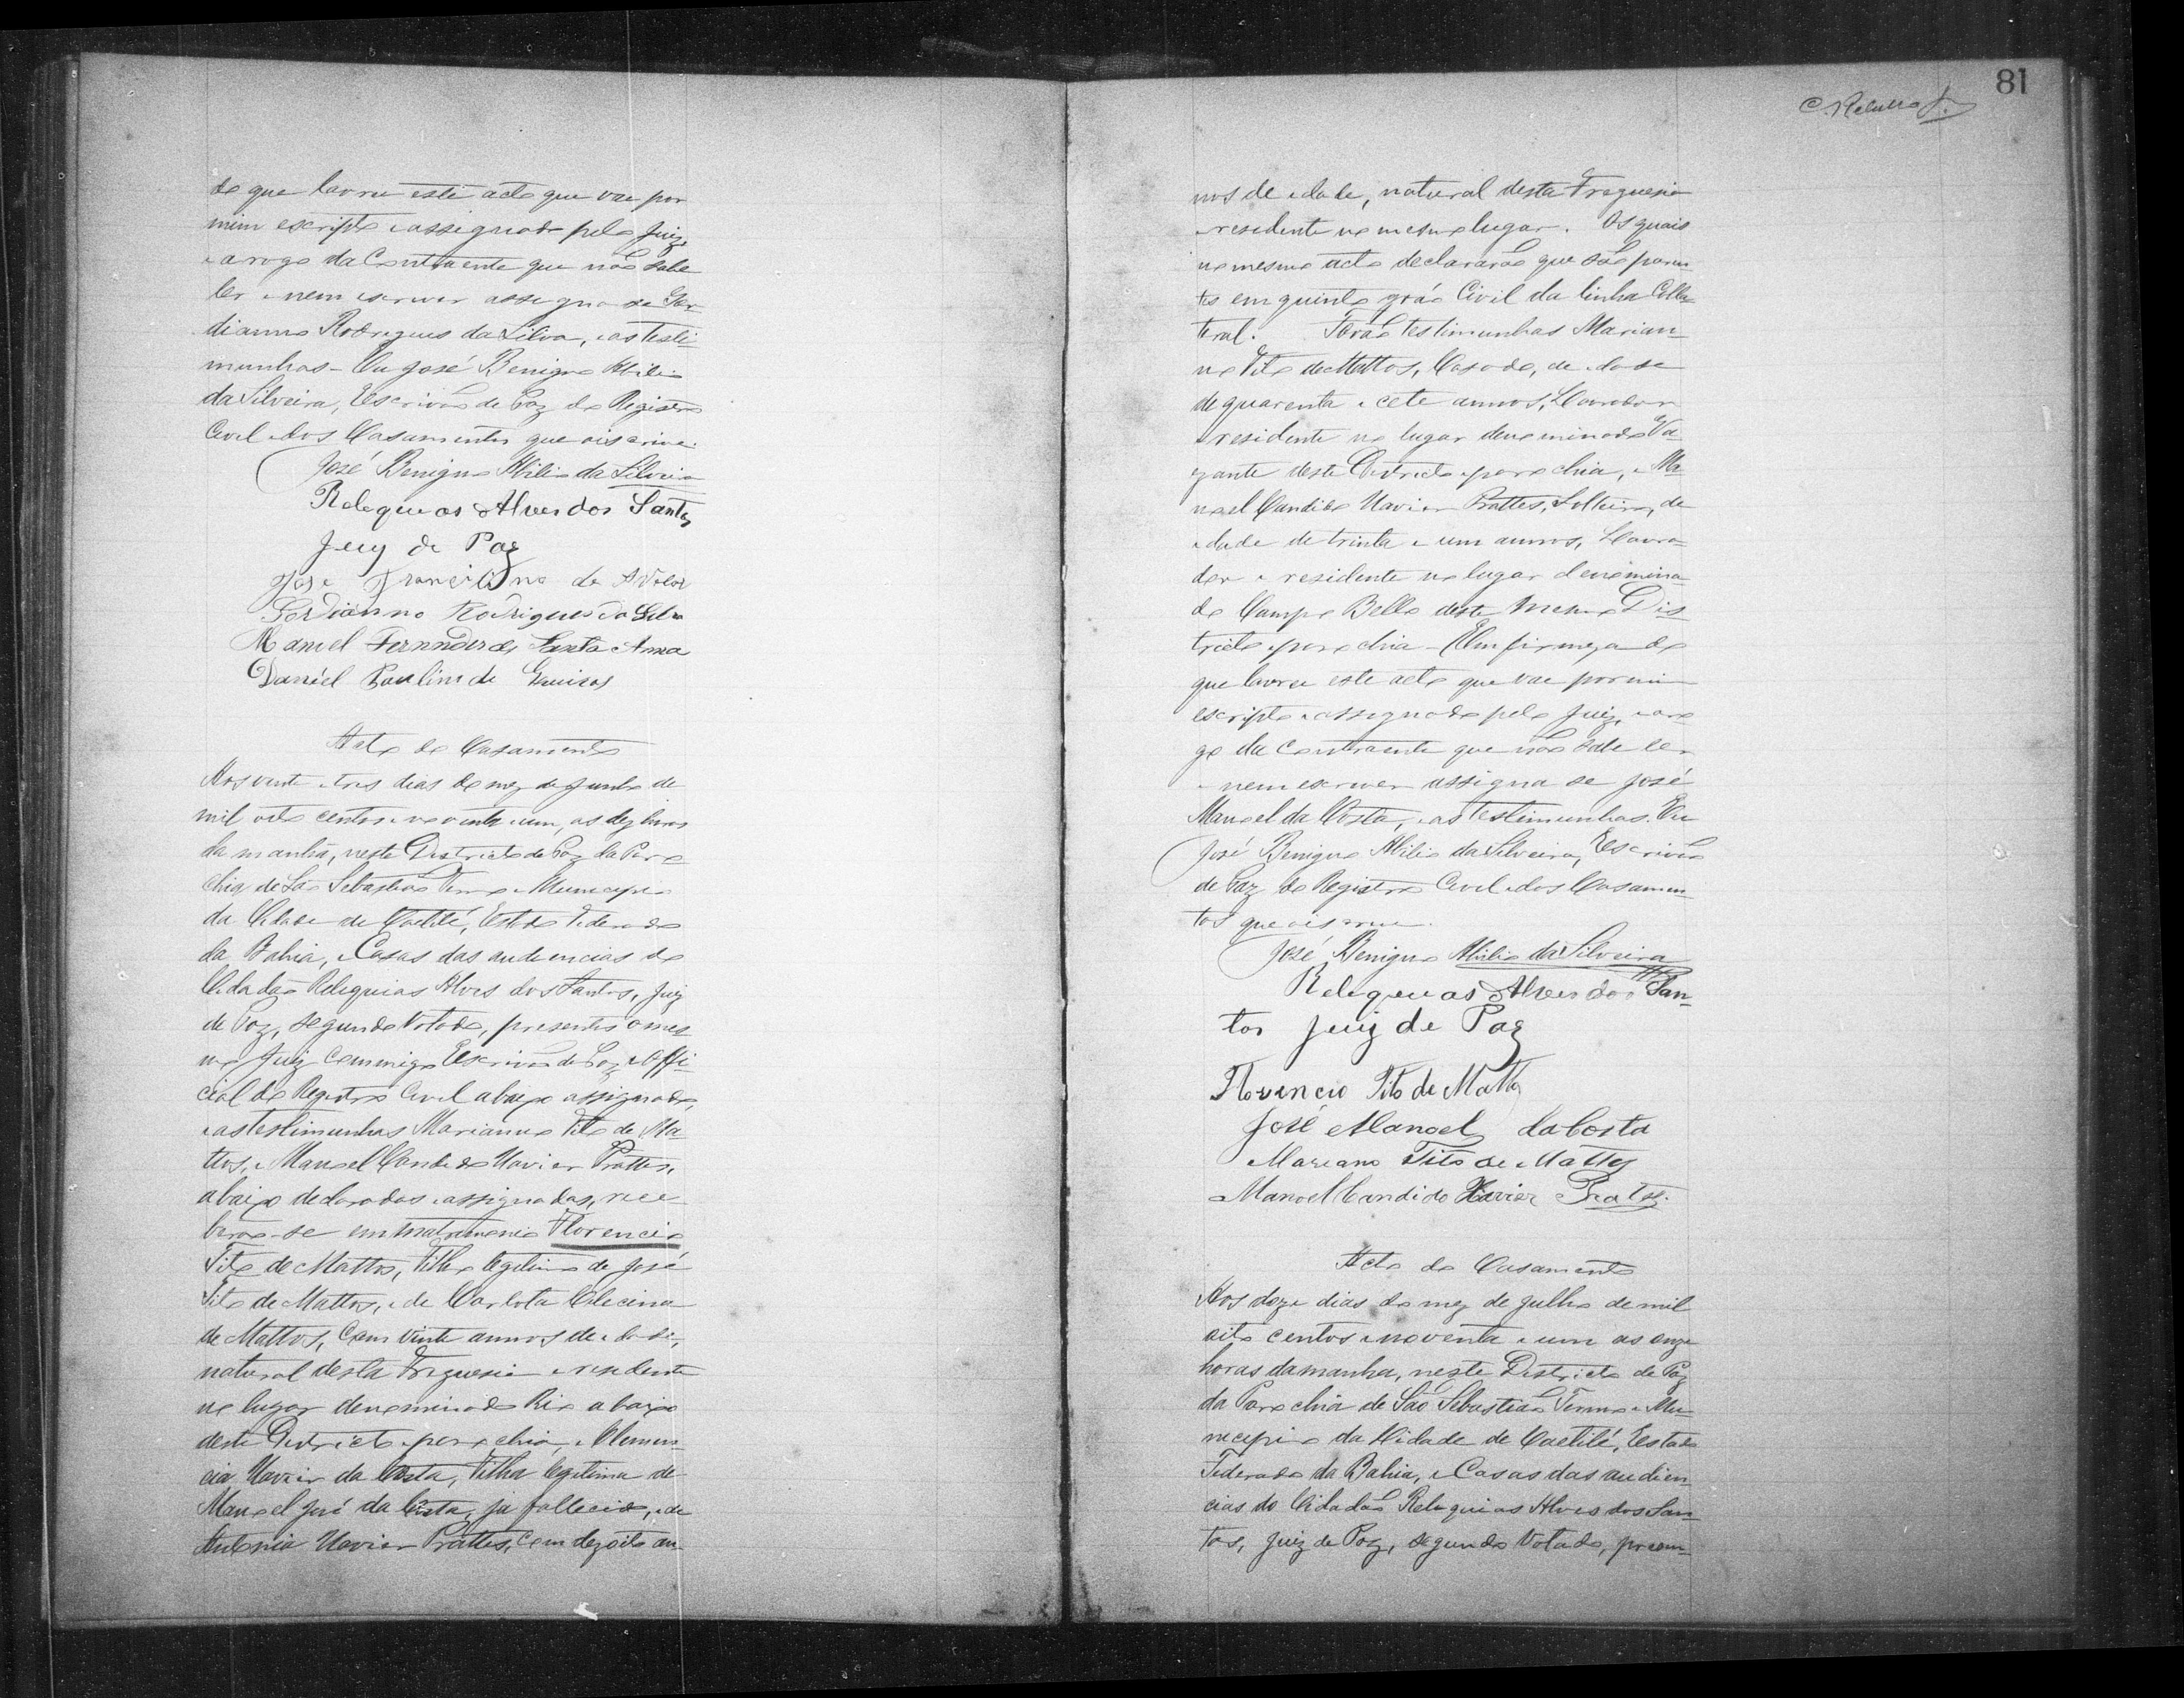 de que lavrei este acto que vae por
mim escripto e assignado pelo Juiz,
e a rogo da Contraente que não sabe
ler e nem escrever assigna se Gor-
dianno Rodrigues da Silva, e as testi-
munhas - Eu José Benigno Abilio
da Silveira, Escrivão de Paz do Registro
Civil e dos Casamentos que o iscrivi.
José Benigno Abilio da Silveira
Relequeas Alves dos Santos
Juiz de Paz
Jose Francilino de
Gordianno Rodrigues da Silva
Manoel Fernndes de Santa Anna
Daniél Paulino de
Acto de Casamento
Aos vinte e tres dias do mez de Junho de
mil oito centos e noventa e um, as dez horas
da manhã, neste Districto de Paz da Paro
chia de São Sebastião Termo e Municipio
da Cidade de Caetité, Estado Federado
da Bahia, e Casas das audiencias do
Cidadão Reliquias Alves dos Santos, Juiz
de Paz, segundo Votado, presentes o mes
mo Juiz Commigo Escrivão de Paz e Offi-
cial do Registro Civil abaixo assignado,
e as testimunhas Marianno Tito de Ma-
ttos, e Manoel Candido Xavier Prattes,
abaixo declarados e assignados, rece
berão-se em matrimonio Florencio
Tito de Mattos, Filho legitimo de José
Tito de Mattos, e de Carlota Clecina
de Mattos, Com vinte annos de idade,
natural desta Freguesia e residente
no lugar denominado Rio abaixo
deste Districto e parochia, e Clemen-
cia Xavier da Costa, Filha legitima de
Manoel José da Costa, ja fallecido, e de
Antonia Xavier Prattes, Com dezoito an-
81
nos de idade, natural desta Freguesia
e residente no mesmo lugar. Os quais
no mesmo acto declararão que são paren-
tes em quinto gráo Civil da linha Colla-
teral. Forão testimunhas Marian-
no Tito de Mattos, Casado, de idade
de quarenta e cete annos, Lavrador
e residente no lugar denominado Va-
gante deste Districto e parochia, e Ma
noel Candido Xavier Prattes, Solteiro, de
idade de trinta e um annos, Lavra-
dor e residente no lugar denomina-
do Campo Bello deste mesmo Dis
tricto e parochia - Em firmeza do
que lavrei este acto que vae por mim
escripto e assignado pelo Juiz, e a ro
go da Contraente que não sabe ler
e nem escrever assigna se José
Manoel da Costa, e as testimunhas. Eu
José Benigno Abilio da Silveira, Escrivão
de Paz do Registro Civil e dos Casamen-
tos que o iscrivi.
José Benigno Abilio da Silveira
Relequeas Alves dos San-
tos Juiz de Paz
Florencio Tito de Mattos
José Manoel da Costa
Mareano Tito de Mattos
Manoel Candido Xavier Prates.
Acto de Casamento
Aos doze dias do mez de Julho de mil
oito centos e noventa e um as onze
horas da manha, neste Districto de Paz
da Parochia de São Sebastião Termo e Mu-
nicipio da Cidade de Caetité, Estado
Federado da Bahia, e Casas das audien-
cias do Cidadão Reliquias Alves dos San-
tos, Juiz de Paz, segundo Votado, presen-